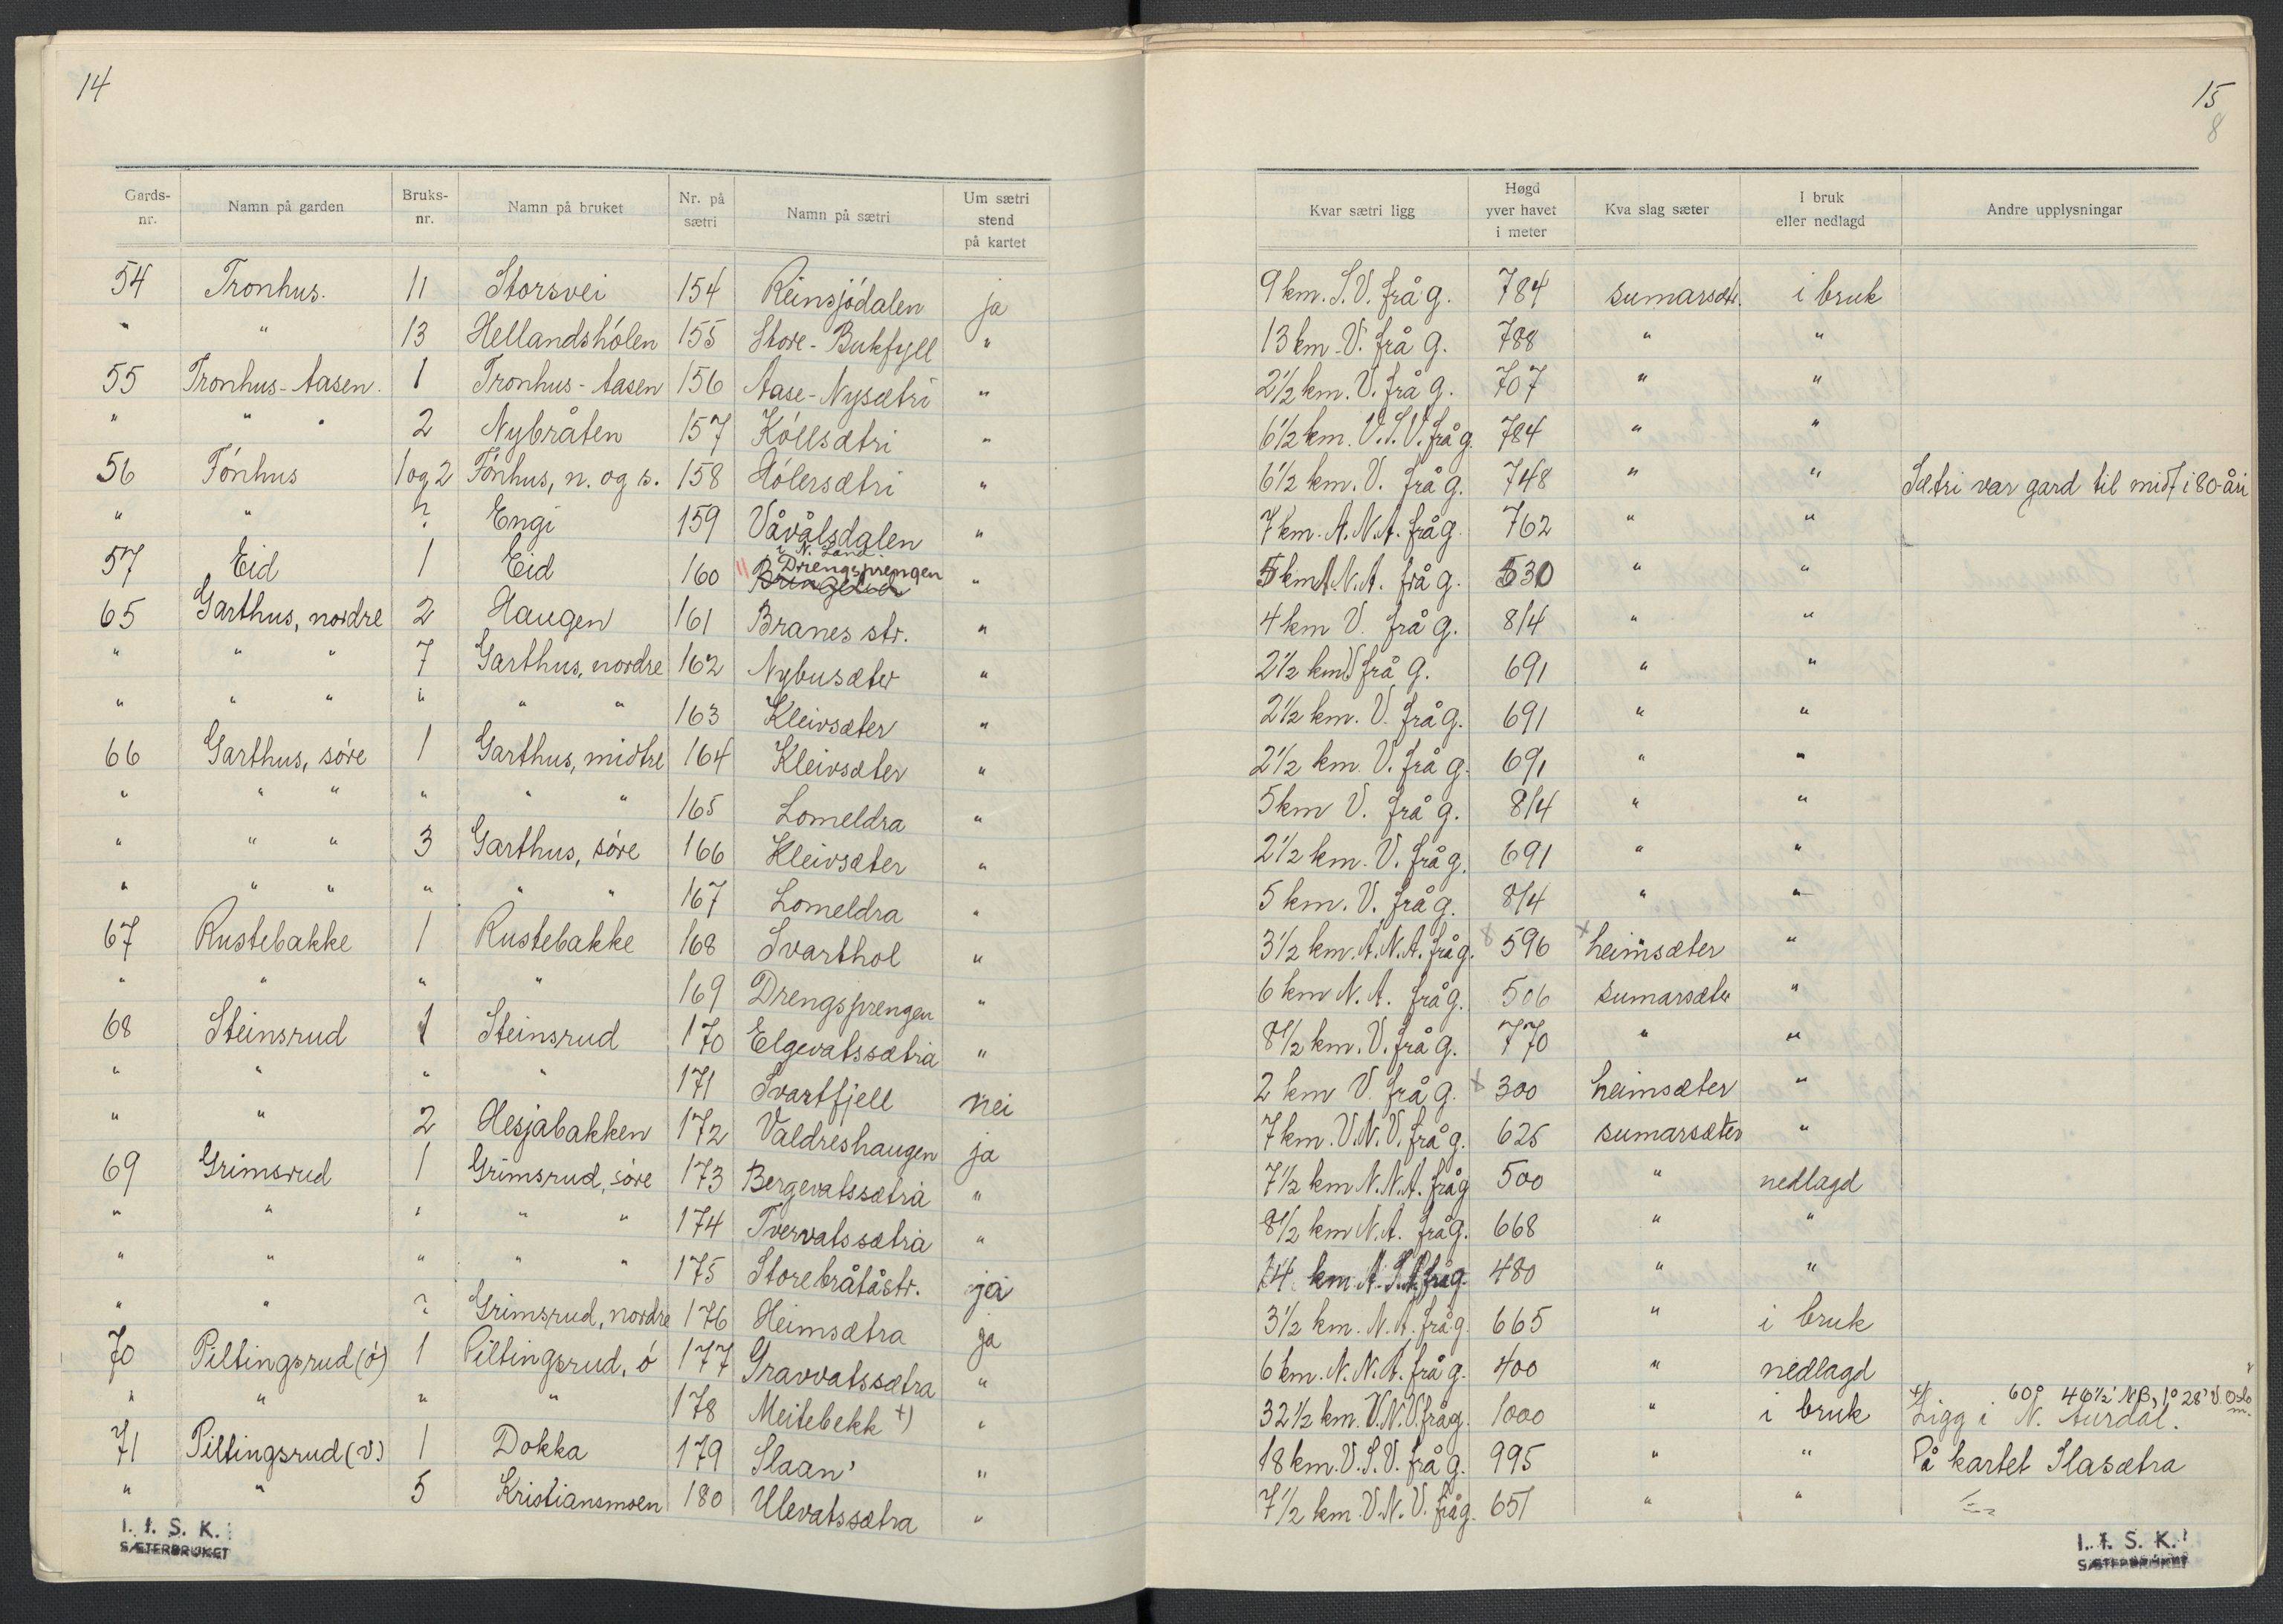 14
Gards-nr. | Namn på garden | Bruks-nr. | Namn på bruket | Nr. på sætri | Namn på sætri | Um sætri stend på kartet
54 | Tronhus. | 11 | Storsvei | 154 | Reinsjödalen | ja
" | " | 13 | Hellandshólen | 155 | Store-Bukfyll | "
55 | Tronhus-Aasen. | 1 | Tronhus-Aasen | 156 | Aase-Nysætri | "
" | " " | 2 | Nybråten | 157 | Kóllsætri | "
56 | Fónhus | 1 og 2 | Fónhus, n. og s. | 158 | Hólersætri | "
" | " | ? | Engi | 159 | Våvålsdalen | "
i N. Land
57 | Eid | 1 | Eid | 160 | Drengsprengen | "
65 | Garthus, nordre | 2 | Haugen | 161 | Branes str. | "
" | " " | 7 | Garthus, nordre | 162 | Nybusæter | "
" | " " | " | " " | 163 | Kleivsæter | "
66 | Garthus, sóre | 1 | Garthus, midtre | 164 | Kleivsæter | "
" | " " | " | " " | 165 | Lomeldra | "
" | " " | 3 | Garthus, sóre | 166 | Kleivsæter | "
" | " " | " | " " | 167 | Lomeldra | "
67 | Rustebakke | 1 | Rustebakke | 168 | Svarthol | "
" | " | " | " | 169 | Drengsprengen | "
68 | Steinsrud | 1 | Steinsrud | 170 | Elgevatssætra | "
" | " | " | " | 171 | Svartfjell | nei
" | " | 2 | Hesjabakken | 172 | Valdreshaugen | ja
69 | Grimsrud | 1 | Grimsrud, sóre | 173 | Bergevatssætra | "
" | " | " | " " | 174 | Tvervatssætra | "
" | " | " | " " | 175 | Storebråtåstr. | ja
" | " | ? | Grimsrud, nordre | 176 | Heimsætra | ja
70 | Piltingsrud (ó) | 1 | Piltingsrud, ó | 177 | Gravvatssætra | "
" | " | " | " | 178 | Meitebekk +) | "
71 | Piltingsrud (v) | 1 | Dokka | 179 | Slaan' | "
" | " | 5 | Kristiansmoen | 180 | Ulevatssætra | "
I. f. S. K.
SÆTERBRUKET
15
8
Kvar sætri ligg | Høgd yver havet i meter | Kva slag sæter | I bruk eller nedlagd | Andre upplysningar
9 km. S.V. frå g. | 784 | sumarsæt. | i bruk
13 km. V. frå g. | 788 | " | "
2½ km. V. frå g. | 707 | " | "
6½ km. V.S.V. frå g. | 784 | " | "
6½ km. V. frå g. | 748 | " | " | Sætri var gard til midt i 80-åri
7 km. A.N.A. frå g. | 762 | " | "
5 km A.N.A. frå g. | 530 | " | "
4 km V. frå g. | 814 | " | "
2½ km V frå g. | 691 | " | "
2½ km. V. frå g. | 691 | " | "
2½ km. V. frå g. | 691 | " | "
5 km V. frå g. | 814 | " | "
2½ km. V. frå g. | 691 | " | "
5 km. V. frå g. | 814 | " | "
3½ km. A.N.A. frå g. | x 596 | x heimsæter | "
6 km N.A. frå g. | 506 | sumarsæter | "
8½ km. V. frå g. | 770 | " | "
2 km V. frå g. | x 300 | heimsæter | "
7 km. V.N.V. frå g. | 625 | sumarsæter | "
7½ km N.N.A. frå g | 500 | " | nedlagd
8½ km N.A. frå g. | 668 | " | "
14 km A.S.A. frå g. | 480 | " | "
3½ km. N.A. frå g. | 665 | " | i bruk
6 km. N.N.A. frå g. | 400 | " | nedlagd
32½ km. V.N.V. frå g. | 1000 | " | i bruk | +) Ligg i N. Aurdal. 60° 46½' NB, 1° 28' V. Oslo m.
18 km. V.S.V. frå g. | 995 | " | " | På kartet Slasætra
7½ km. V.N.V. frå g. | 651 | " | "
I. f. S. K.
SÆTERBRUKET